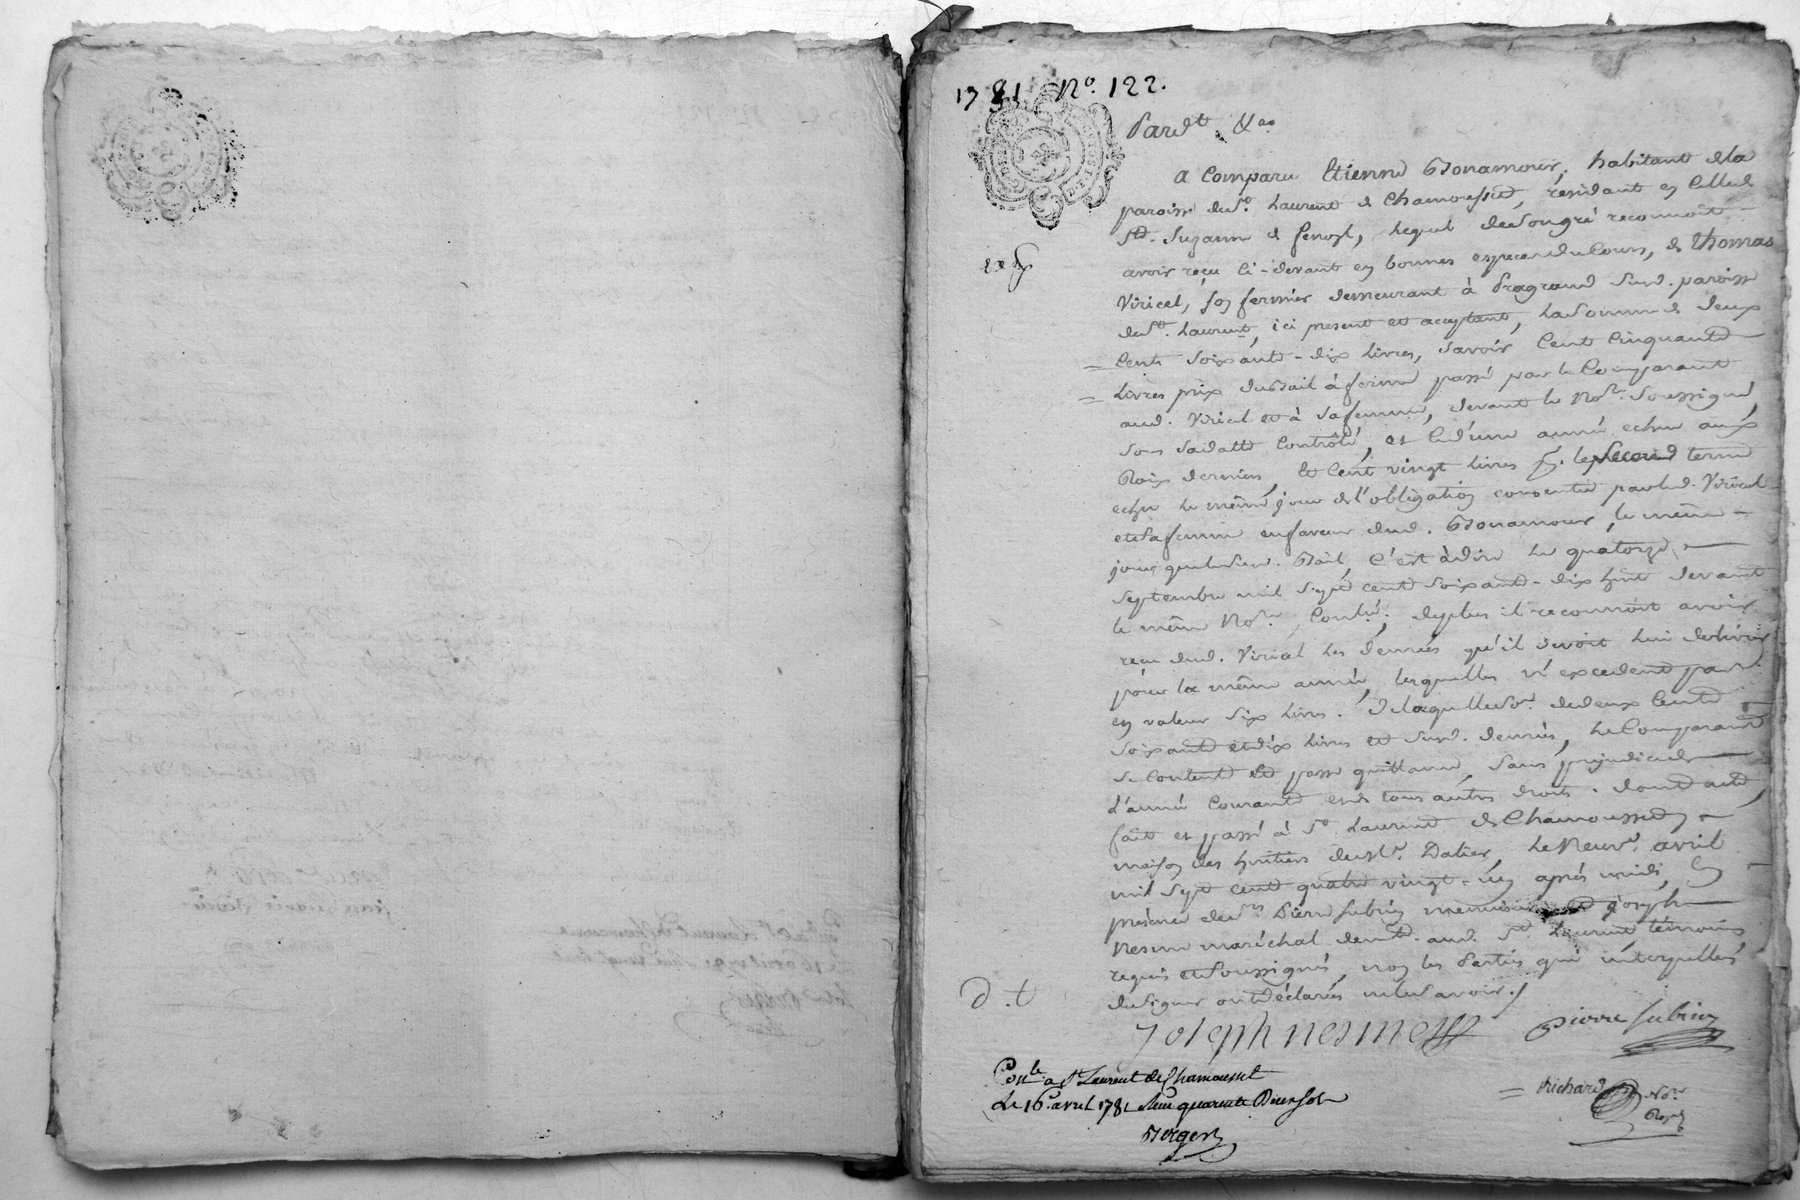 1781 No. 122.
Pardt. &a.
a Comparu Etienne Bonamour, habitant de la
paroisse de St. Laurent de Chamousset, résidant en Celle de
Ste. Suzanne de, lequel de son gré reconnoit
avoir reçu Ci-devant en bonnes especes du Cours, de thomas
Viricel, son fermier demeurant à Pragrand susd. paroisse
de St. Laurent, ici present et acceptant, la Somme de deux
Cents soixante-dix livres, savoir Cent Cinquante
livres prix du bail à ferme passé par le Comparant
aud. Viricel et à sa femme, devant le Nore. soussigné,
sous sa datte Contrôlé, et Ce d'une année echue aux
Rois derniers, et Cent vingt livres pr. le second terme
echu le même jour de l'obligation consentie par led. Viricel
et sa femme en faveur dud. Bonamour, le même
jour que le susd. Bail, C'est à dire le quatorze
septembre mil sept cent soixante-dix huit devant
le même Nore. Contlé.; de plus il reconnoit avoir
reçu dud. Viricel les denrées qu'il devoit lui délivrer
pour la même année, lesquelles n'excedent pas
en valeur six livres. de laquelle Se. de deux Cents
soixante et dix livres et susd. denrées, le Comparant
se Contente et passe quittance, sans préjudice de
l'année Courante et de tous autres droits. dont acte,
fait et passé à St. Laurent de Chamousset,
maison des hritiers du Sr. Dalier, le Neuve. avril
mil sept cent quatre vingt-un après midi, En
présence de srs. Pierre Subrin menuisier et joseph
Nesme maréchal demts. aud. St. Laurent témoins
requis et soussignés, non les Parties qui interpellés
de signer ont déclarés ne le savoir./.
d. t
joseph nesme
pierre subrin
Conlé. a St Laurent de Chamousset
Le 16 avril 1781
Berger
Richard Nore.
Royl